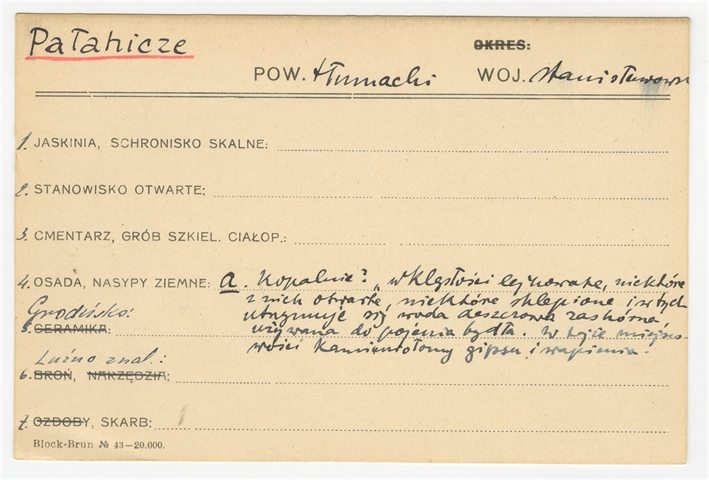 Pałahicze
OKRES:
POW. tłumacki WOJ. stanisławowsk
1. JASKINIA, SCHRONISKO SKALNE:
2. STANOWISKO OTWARTE:
3. CMENTARZ, GRÓB SZKIEL. CIAŁOP.:
4. OSADA, NASYPY ZIEMNE: a. Kopalnie? „wklęsłości lejkowate, niektóre
z nich otwarte, niektóre sklepione i w tych
Grodzisko:
utrzymuje się woda deszczowa zaskórna
5. CERAMIKA:
używana do pojenia bydła. W tejże miejsco-
wości kamieniołomy gipsu i wapienia.
Luźno znal.:
6. BROŃ, NARZĘDZIA:
7. OZDOBY, SKARB:
Block-Brun № 43—20.000.